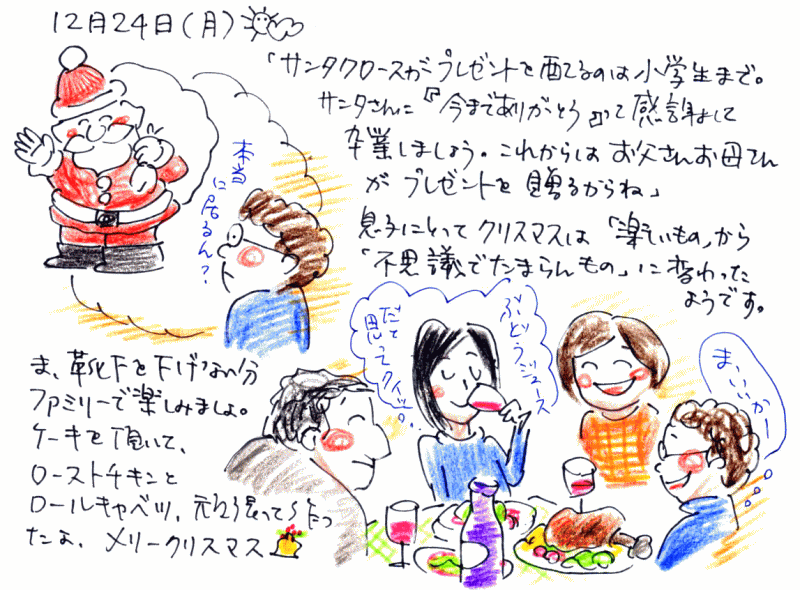 12月24日(月)
「サンタクロースがプレゼントを配るのは小学生まで。
サンタさんに『今までありがとう』って感謝して
卒業しましょう。これからはお父さんお母さん
がプレゼントを贈るからね」
本当
に居るん?
息子にとってクリスマスは「楽しいもの」から
「不思議でたまらんもの」に変わった
ようです。
ぶどうジュース
だて
思ってクイッ。
ま、いいかー
ま、靴下を下げない分
ファミリーで楽しみましょ。
ケーキを頂いて、
ローストチキンと
ロールキャベツ、
たよ、メリークリスマス